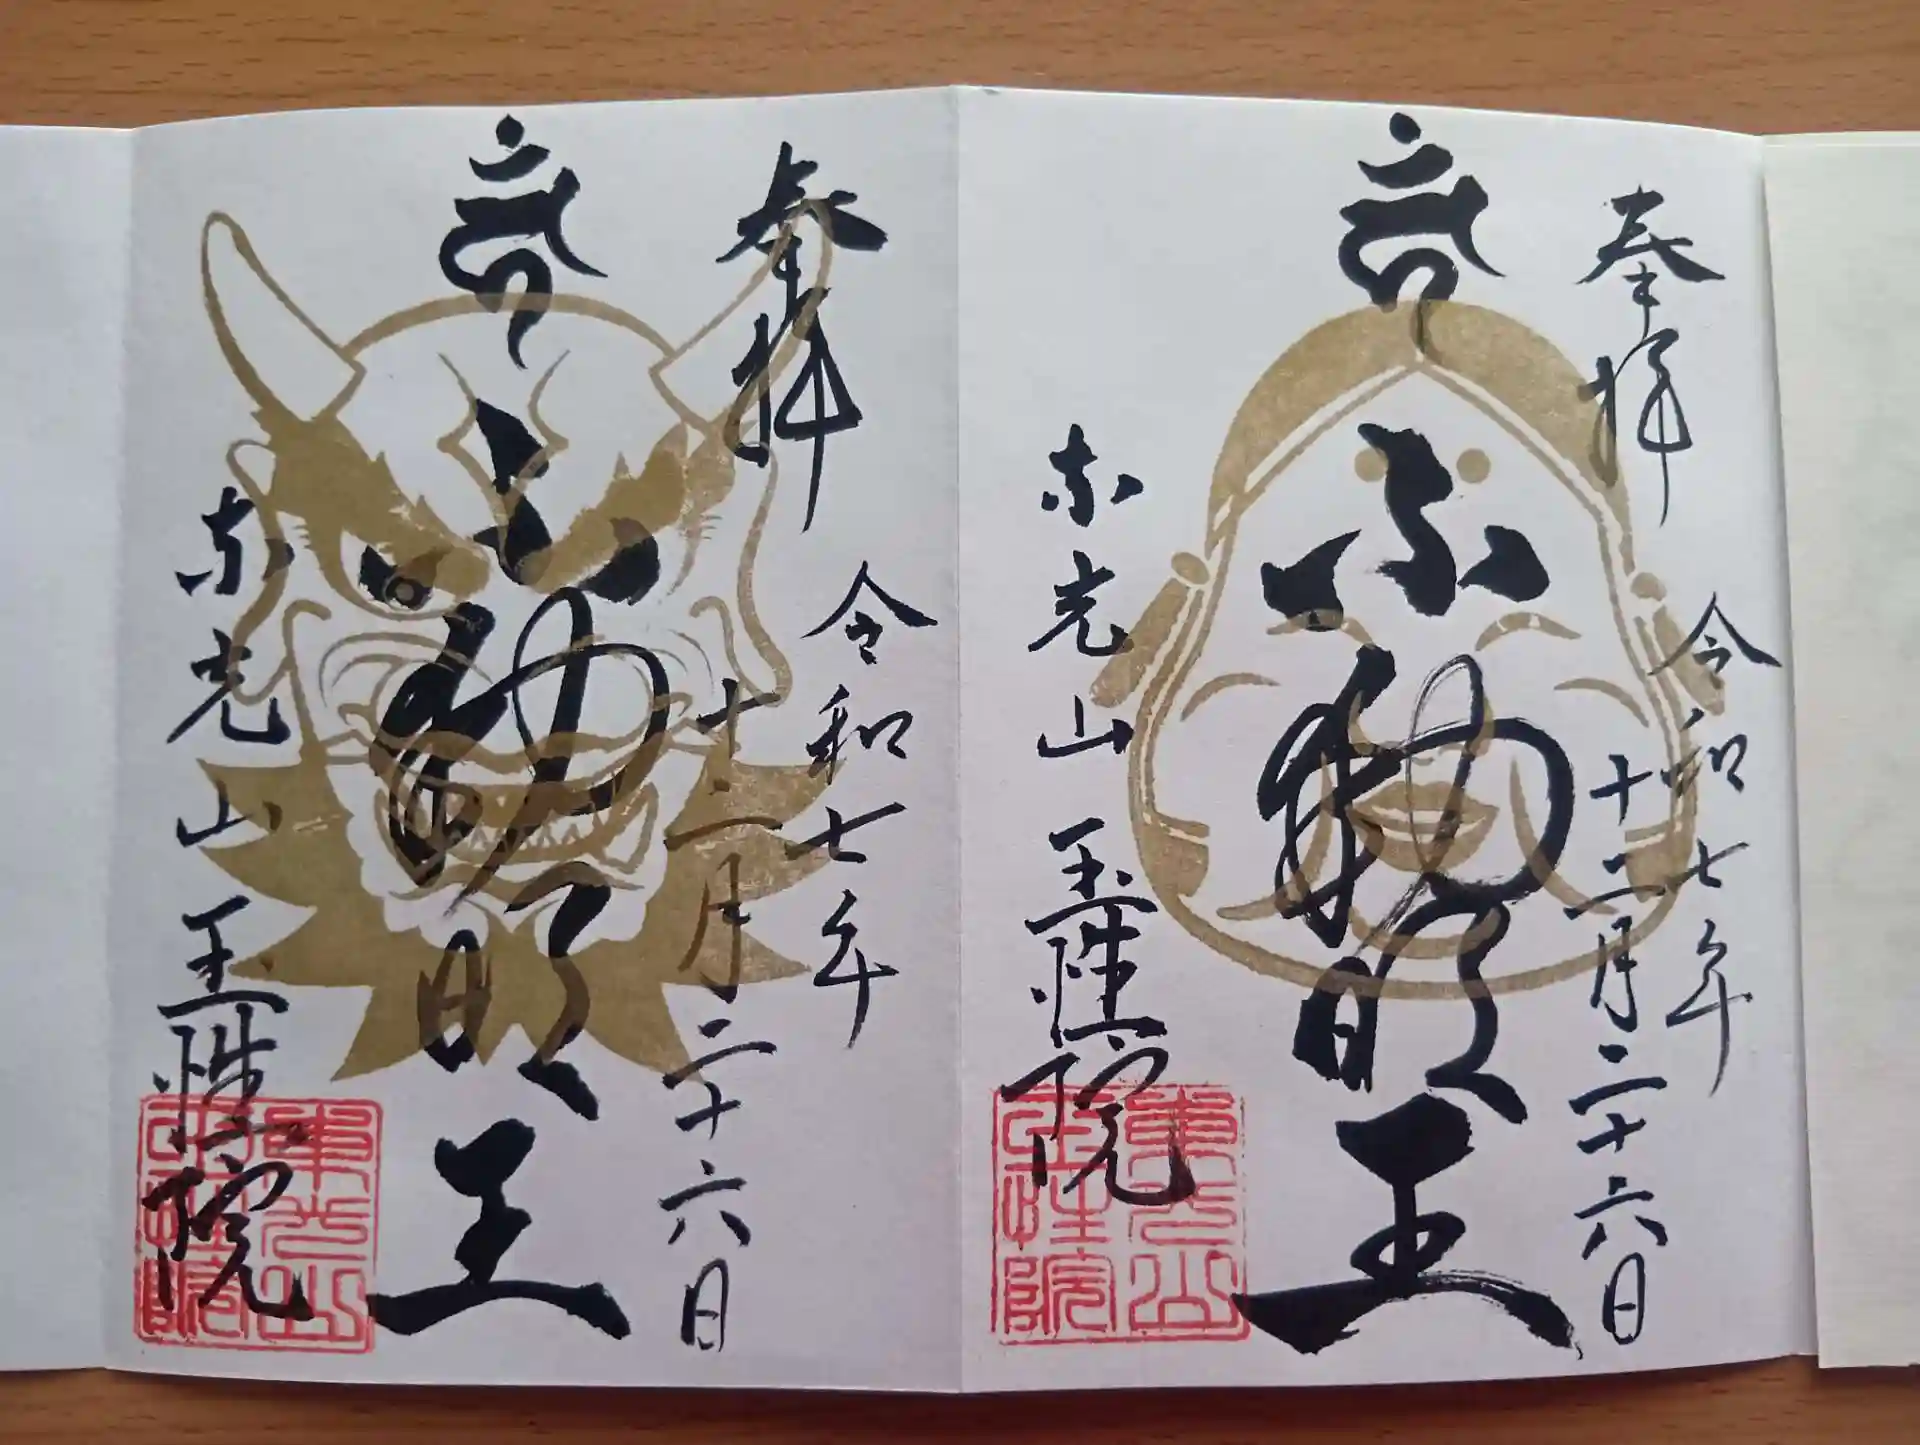 奉拝
令和七年
十二月二十六日
不動明王
東光山 玉性院
東光山
玉性院
奉拝
令和七年
十二月二十六日
不動明王
東光山 玉性院
東光山
玉性院